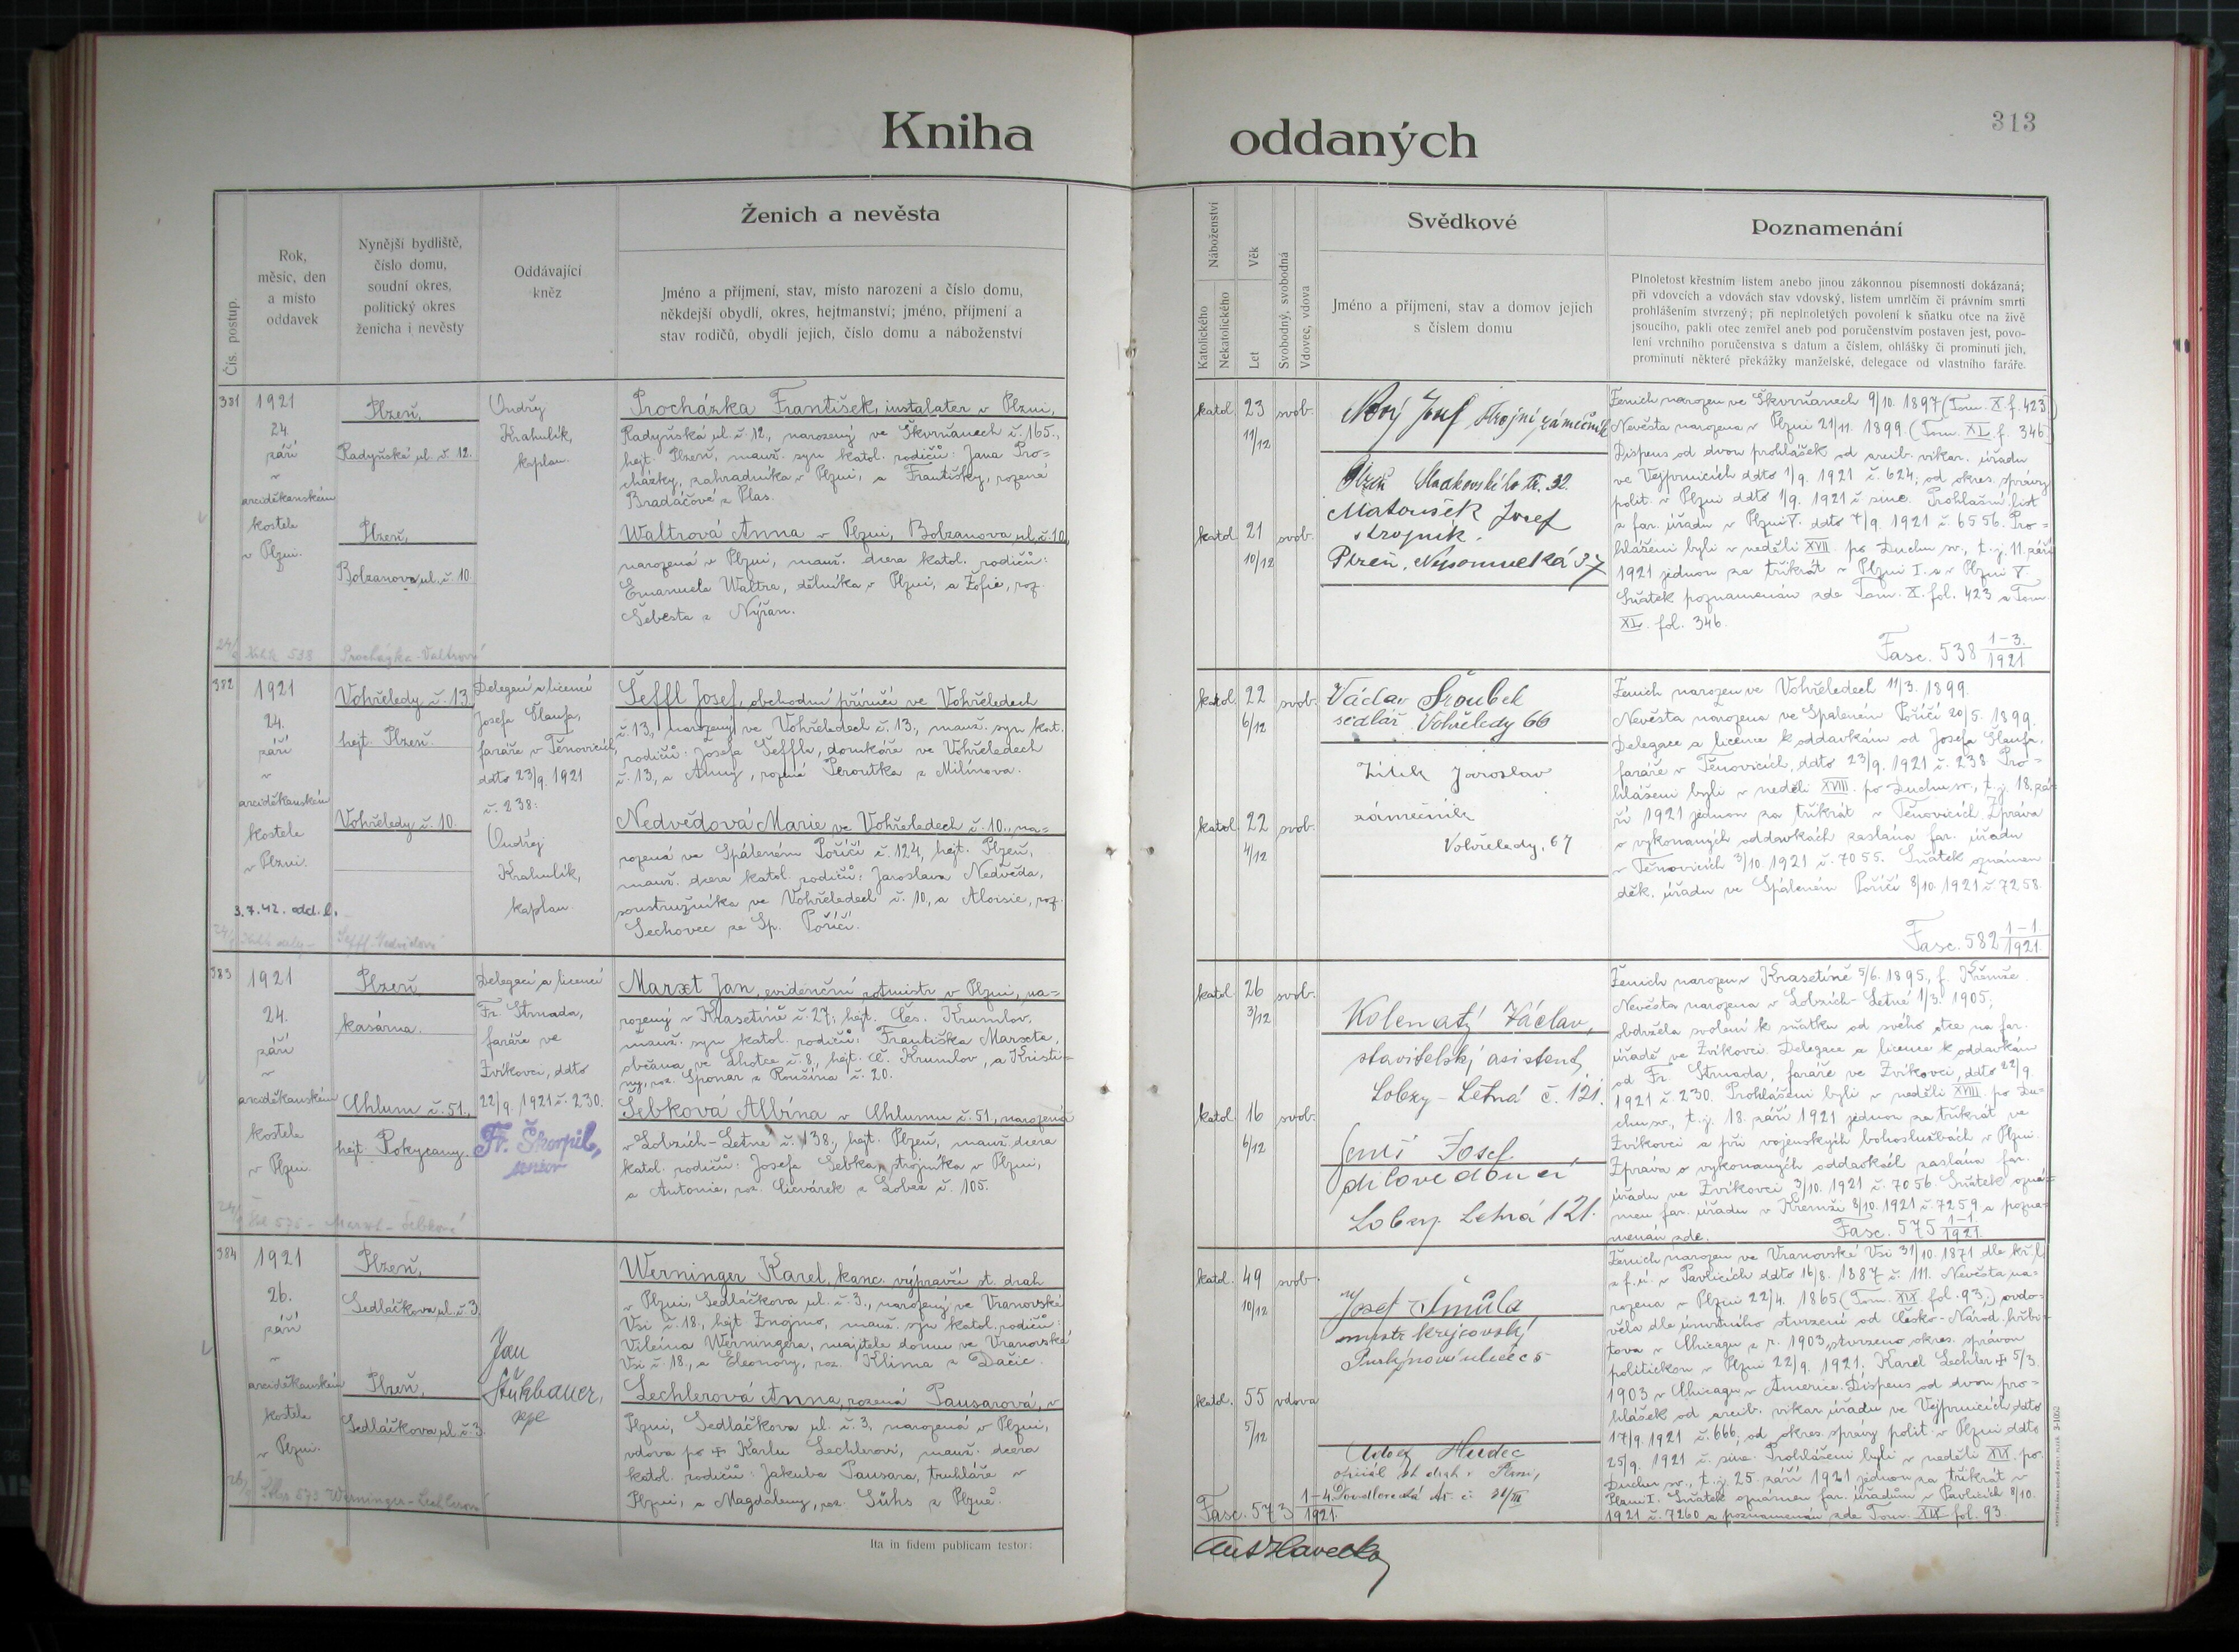 Kniha
oddaných
313
Čís. postup.
Rok,
měsíc, den
a místo
oddavek
Nynější bydliště,
číslo domu,
soudní okres,
politický okres
ženicha i nevěsty
Oddávající
kněz
Ženich a nevěsta
Jméno a příjmení, stav, místo narození a číslo domu,
někdejší obydlí, okres, hejtmanství; jméno, příjmení a
stav rodičů, obydlí jejich, číslo domu a náboženství
Náboženství
Katolického
Nekatolického
Věk
Let
Svobodný, svobodná
Vdovec, vdova
Svědkové
Jméno a příjmení, stav a domov jejich
s číslem domu
Poznamenání
Plnoletost křestním listem anebo jinou zákonnou písemností dokázaná;
při vdovcích a vdovách stav vdovský, listem umrlčím či právním smrti
prohlášením stvrzený; při neplnoletých povolení k sňatku otce na živě
jsoucího, pakli otec zemřel aneb pod poručenstvím postaven jest, povo-
lení vrchního poručenstva s datum a číslem, ohlášky či prominutí jich,
prominutí některé překážky manželské, delegace od vlastního faráře.
381
1921
24.
září
v
arciděkanském
kostele
v Plzni.
Plzeň,
Radyňská ul. č. 12.
Plzeň,
Bolzanova ul. č. 10.
Ondřej
Krahulík,
kaplan.
Procházka František, instalater v Plzni,
Radyňská ul. č. 12., narozený ve Skvrňanech č. 165.,
hejt. Plzeň, manž. syn katol. rodičů: Jana Pro-
cházky, zahradníka v Plzni, a Františky, rozené
Bradáčové z Plas.
Waltrová Anna v Plzni, Bolzanova ul. č. 10,
narozená v Plzni, manž. dcera katol. rodičů:
Emanuela Waltra, dělníka v Plzni, a Žofie, roz.
Šebesta z Nýřan.
Procházka-Valtrová
katol. 23 svob.
11/12
katol. 21 svob.
10/12
Nový Josef strojní zámečník
Plzeň Sladkovského tř. 32.
Matoušek Josef
strojník.
Plzeň, Nepomucká 37
Ženich narozen ve Skvrňanech 9/10. 1897 (Tom. X. f. 423.)
Nevěsta narozena v Plzni 21/11. 1899. (Tom. XL. f. 346.)
Dispens od dvou prohlášek od arcib. vikar. úřadu
ve Vejprnicích ddto 1/9. 1921 č. 624; od okres. správy
polit. v Plzni ddto 1/9. 1921 č sine. Prohlašní list
z far. úřadu v Plzni V. ddto 7/9. 1921 č. 6556. Pro-
hlášeni byli v neděli XVII. po Duchu sv., t. j. 11. září
1921 jednou za třikrát v Plzni I. a v Plzni V.
Sňatek poznamenán zde Tom. X. fol. 423 a Tom.
XL. fol. 346.
Fasc. 538 1-3./1921
382
1921
24.
září
v
arciděkanském
kostele
v Plzni.
3.7.42. odd. l.
Vohřeledy č. 13.
hejt. Plzeň.
Vohřeledy č. 10.
Delegací a licencí
Josefa Šlaufa,
faráře v Těnovicích,
ddto 23/9. 1921
č. 238:
Ondřej
Krahulík,
kaplan.
Šeffl Josef, obchodní příručí ve Vohřeledech
č. 13, narozený ve Vohřeledech č. 13., manž. syn kat.
rodičů: Josefa Šeffla, domkáře ve Vohřeledech
č. 13, a Anny, rozené Peroutka z Milínova.
Nedvědová Marie ve Vohřeledech č. 10., na-
rozená ve Spáleném Poříčí č. 124, hejt. Plzeň,
manž. dcera katol. rodičů: Jaroslava Nedvěda,
soustružníka ve Vohřeledech č. 10, a Aloisie, roz.
Sechovec ze Sp. Poříčí.
katol. 22 svob.
6/12
katol. 22 svob.
4/12
Václav Šroubek
sedlář Vohřeledy 66
Zítek Jaroslav
zámečník
Vohřeledy, 67
Ženich narozen ve Vohřeledech 11/3. 1899.
Nevěsta narozena ve Spáleném Poříčí 20/5. 1899.
Delegace a licence k oddavkám od Josefa Šlaufa,
faráře v Těnovicích, ddto 23/9. 1921 č. 238 Pro-
hlášeni byli v neděli XVIII. po Duchu sv., t. j. 18. zá-
ří 1921 jednou za třikrát v Těnovicích. Zpráva
o vykonaných oddavkách zaslána far. úřadu
v Těnovicích 3/10. 1921 č. 7055. Sňatek oznámen
děk. úřadu ve Spáleném Poříčí 8/10. 1921 č. 7258.
Fasc. 582 1-1/1921.
383
1921
24.
září
v
arciděkanském
kostele
v Plzni.
Plzeň
kasárna.
Chlum č. 51.,
hejt. Rokycany.
Delegací a licencí
Fr. Strnada,
faráře ve
Zvíkovci, ddto
22/9. 1921 č. 230.
Fr. Škorpil,
senior
Marxt Jan, evidenční rotmistr v Plzni, na-
rozený v Krasetíně č. 27; hejt. Čes. Krumlov,
manž. syn katol. rodičů: Františka Marxta,
občana ve Lhotce č. 8., hejt. Č. Krumlov, a Kristi-
ny, roz. Sponar z Roušína č. 20.
Šebková Albína v Chlumu č. 51., narozená
v Lobzích-Letné č. 138., hejt. Plzeň, manž. dcera
katol. rodičů: Josefa Šebka, strojníka v Plzni,
a Antonie, roz. Cicvárek z Lobez č. 105.
katol. 26 svob.
3/12
katol. 16 svob.
6/12
Kolenatý Václav,
stavitelský asistent,
Lobzy - Letná č. 121.
Josef
dílovedoucí
Lobzy Letná 121.
Ženich narozen v Krasetíně 5/6. 1895, f. Křemže
Nevěsta narozena v Lobzích-Letné 1/3. 1905;
obdržela svolení k sňatku od svého otce na far.
úřadě ve Zvíkovci. Delegace a licence k oddavkám
od Fr. Strnada, faráře ve Zvíkovci, ddto 22/9.
1921 č. 230. Prohlášeni byli v neděli XVIII. po Du-
chu sv., t. j. 18. září 1921 jednou za třikrát ve
Zvíkovci a při vojenských bohoslužbách v Plzni.
Zpráva o vykonaných oddavkách zaslána far.
úřadu ve Zvíkovci 3/10. 1921 č. 7056. Sňatek ozná-
men far. úřadu v Křemži 8/10. 1921 č. 7259 a pozna-
menán zde. Fasc. 575 1-1./1921.
384
1921
26.
září
v
arciděkanském
kostele
v Plzni.
Plzeň,
Sedláčkova ul. č. 3.
Plzeň,
Sedláčkova ul. č. 3.
Jan
Werninger Karel, kanc. výpravčí st. drah
v Plzni, Sedláčkova ul. č. 3., narozený ve Vranovské
Vsi č. 18., hejt. Znojmo, manž. syn katol. rodičů:
Viléma Werningera, majitele domu ve Vranovské
Vsi č. 18., a Eleonory, roz. Klima z Dačic.
Lechlerová Anna, rozená Pausarová, v
Plzni, Sedláčkova ul. č. 3, narozená v Plzni,
vdova po + Karlu Lechlerovi, manž. dcera
katol. rodičů: Jakuba Pausara, truhláře v
Plzni, a Magdaleny, roz. Sühs z Plzně.
Werninger-Lechlerová
katol. 49 svob.
10/12
katol. 55 vdova
5/12
Josef Šmůla
mistr krejčovský
Purkyňova ulice č 5
Hudec
oficiál st. drah v Plzni,
Fasc. 573 1-4/1921.
Ženich narozen ve Vranovské Vsi 31/10. 1871 dle kř. l.
z f. ú. v Pavlicích ddto 16/8. 1887 č. 111. Nevěsta na-
rozena v Plzni 22/4. 1865 (Tom. XIX fol. 93.;) ovdo-
věla dle úmrtního stvrzení od Česko-Národ. hřbi-
tova v Chicagu z r. 1903, stvrzeno okres. správou
politickou v Plzni 22/9. 1921. Karel Lechler + 5/3.
1903 v Chicagu v Americe. Dispens od dvou pro-
hlášek od arcib. vikar. úřadu ve Vejprnicích ddto
17/9. 1921 č. 666; od okres. správy polit. v Plzni ddto
25/9. 1921 č. sine. Prohlášeni byli v neděli XIX. po
Duchu sv., t. j. 25. září 1921 jednou za třikrát v
Plzni I. Sňatek oznámen far. úřadům v Pavlicích 8/10.
1921 č. 7260 a poznamenán zde Tom. XIX fol. 93
Ita in fidem publicam testor: